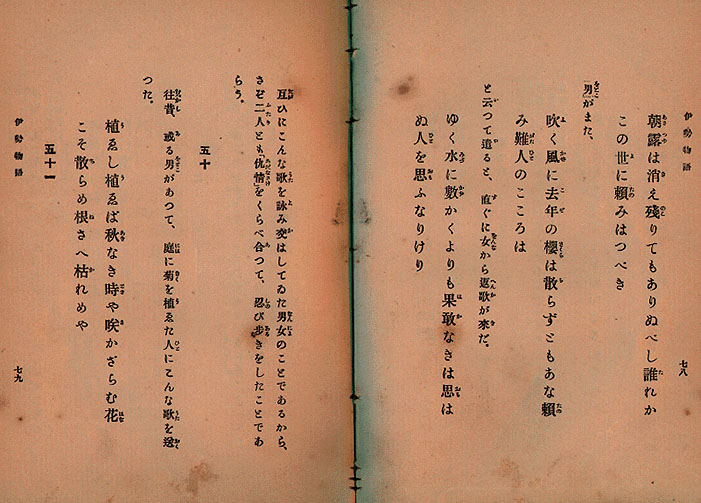 伊勢物語
朝露は消え殘りてもありぬべし誰れか
この世に賴みはつべき
「男」がまた、
吹く風に去年の櫻は散らずともあな賴
み難人のこころは
と云つて遣ると、直ぐに女から返歌が來だ。
ゆく水に數かくよりも果敢なきは思は
ぬ人を思ふなりけり
七八
互ひにこんな歌を詠み交はしてゐた男女のことであるから、
さぞ二人とも仇情をくらべ合つて、忍び步きをしたことであ
らう。
五十
往昔、或る男があつて、庭に菊を植ゑた人にこんな歌を送
つた。
植ゑし植ゑば秋なき時や咲かざらむ花
こそ散らめ根さへ枯れめや
五十一
伊勢物語
七九